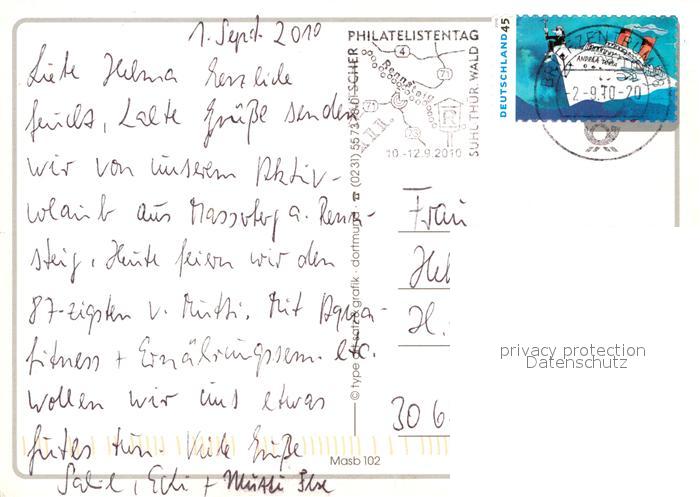 1. Sept. 2010
Liebe Helma Herzliche
feucht, kalte Grüße senden
wir von unserem Aktiv-
urlaub aus Masserberg a. Renn-
steig. Heute feiern wir den
87-zigsten v. Mutti. Mit Aqua-
fitness + Ernährungssem. etc.
wollen wir uns etwas
gutes tun. Viele Grüße
Ecki + Mutti Ilse
PHILATELISTENTAG
SUHL/THÜR. WALD
Rennsteig
4
71
71
73
10.-12.9.2010
DEUTSCHLAND 45
BRIEFZENTRUM
-2.-9.10-20
© type art satz & grafik · dortmund · ☎ (0231) 557376
Masb 102
Frau
Hel
H.
306
privacy protection
Datenschutz